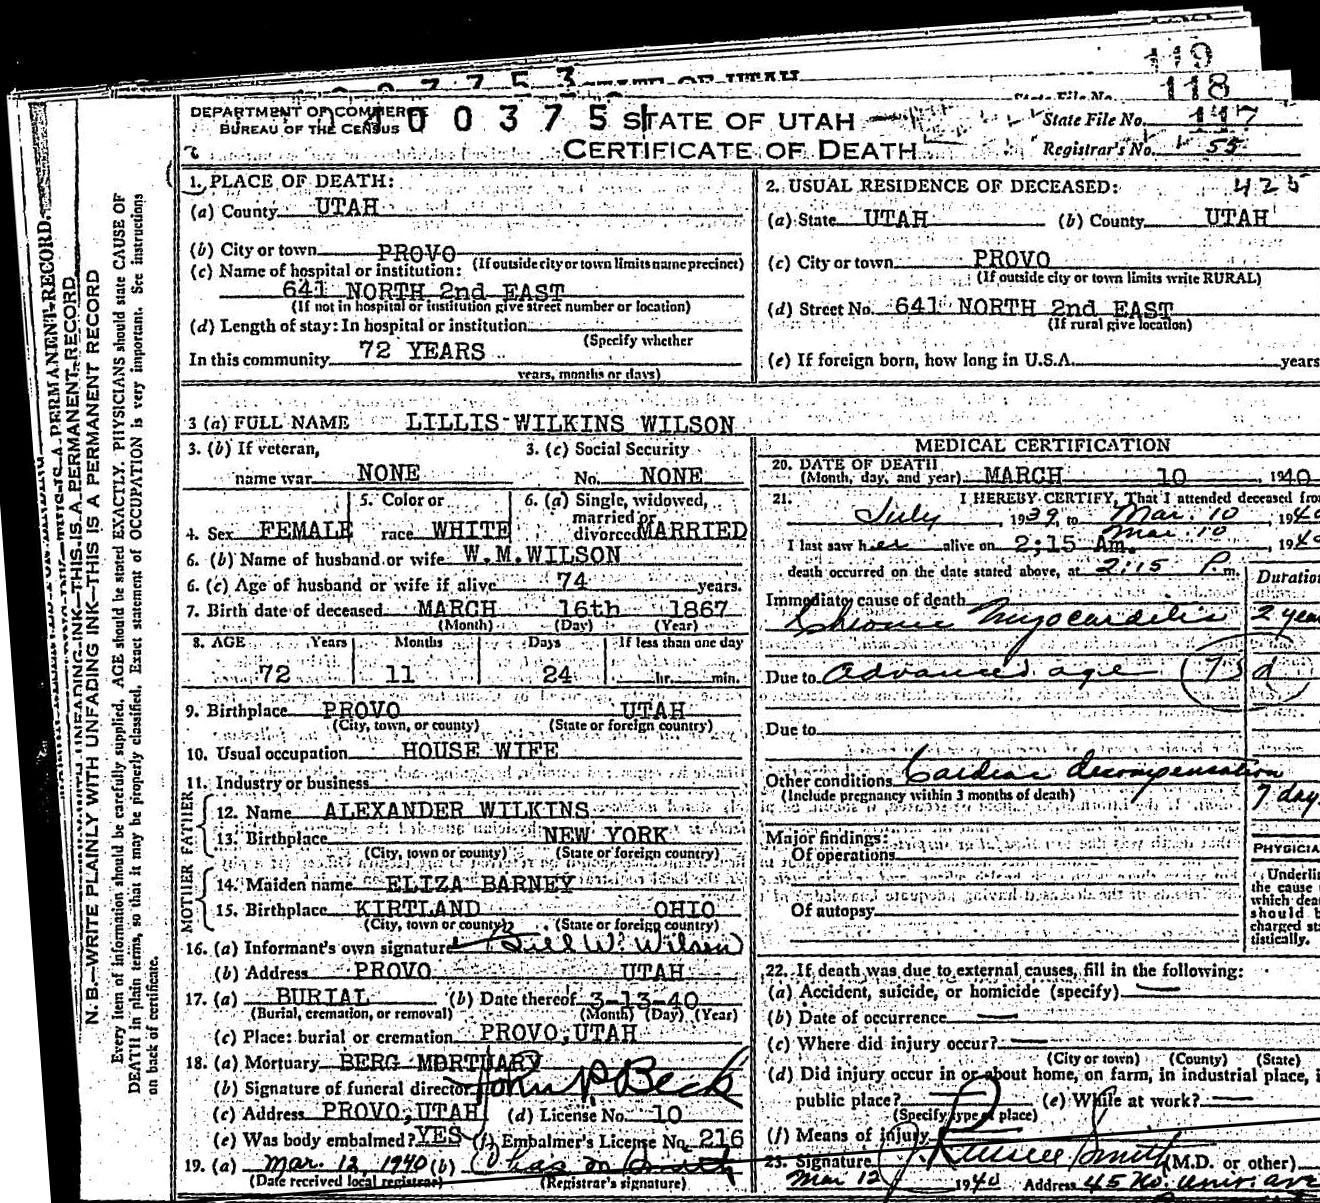 119
STATE OF UTAH
118
DEPARTMENT OF COMMERCE
BUREAU OF THE CENSUS
400375
STATE OF UTAH
CERTIFICATE OF DEATH
State File No. 117
Registrar's No. 55
425
1. PLACE OF DEATH:
(a) County UTAH
(b) City or town PROVO
(If outside city or town limits name precinct)
(c) Name of hospital or institution:
641 NORTH 2nd EAST
(If not in hospital or institution give street number or location)
(d) Length of stay: In hospital or institution
(Specify whether
In this community 72 YEARS
years, months or days)
2. USUAL RESIDENCE OF DECEASED:
(a) State UTAH (b) County UTAH
(c) City or town PROVO
(If outside city or town limits write RURAL)
(d) Street No. 641 NORTH 2nd EAST
(If rural give location)
(e) If foreign born, how long in U.S.A. years
3 (a) FULL NAME LILLIS WILKINS WILSON
3. (b) If veteran, name war NONE
3. (c) Social Security No. NONE
4. Sex FEMALE
5. Color or race WHITE
6. (a) Single, widowed, married or divorced MARRIED
6. (b) Name of husband or wife W.M.WILSON
6. (c) Age of husband or wife if alive 74 years.
7. Birth date of deceased MARCH 16th 1867
(Month) (Day) (Year)
8. AGE Years Months Days If less than one day
72 11 24 hr. min.
9. Birthplace PROVO UTAH
(City, town, or county) (State or foreign country)
10. Usual occupation HOUSE WIFE
11. Industry or business
FATHER
12. Name ALEXANDER WILKINS
13. Birthplace NEW YORK
(City, town or county) (State or foreign country)
MOTHER
14. Maiden name ELIZA BARNEY
15. Birthplace KIRTLAND OHIO
(City, town or county) (State or foreign country)
16. (a) Informant's own signature Will W. Wilson
(b) Address PROVO UTAH
17. (a) BURIAL (b) Date thereof 3-13-40
(Burial, cremation, or removal) (Month) (Day) (Year)
(c) Place: burial or cremation PROVO, UTAH
18. (a) Mortuary BERG MORTUARY
(b) Signature of funeral director John P Beck
(c) Address PROVO, UTAH (d) License No. 10
(e) Was body embalmed? YES (f) Embalmer's License No. 216
19. (a) Mar. 12, 1940 (b) Chas M Smith
(Date received local registrar) (Registrar's signature)
MEDICAL CERTIFICATION
20. DATE OF DEATH
(Month, day, and year) MARCH 10 1940
21. I HEREBY CERTIFY, That I attended deceased from
July, 1939, to Mar. 10, 1940
Mar. 10
I last saw her alive on 2:15 Am., 1940
death occurred on the date stated above, at 2:15 P.m.
Duration
Immediate cause of death
Chronic Myocarditis 2 years
Due to Advanced age
Due to
Other conditions Cardiac decompensation
(Include pregnancy within 3 months of death)
7 days
Major findings:
Of operations
Of autopsy
PHYSICIAN
Underline
the cause
which death
should b
charged sta
tistically.
22. If death was due to external causes, fill in the following:
(a) Accident, suicide, or homicide (specify) —
(b) Date of occurrence —
(c) Where did injury occur? —
(City or town) (County) (State)
(d) Did injury occur in or about home, on farm, in industrial place, i
public place? (e) While at work? —
(Specify type of place)
(f) Means of injury
23. Signature Russel Smith (M.D. or other)
Mar 12 1940 Address 45 No. Univ. ave
N. B.—WRITE PLAINLY WITH UNFADING INK—THIS IS A PERMANENT RECORD
Every item of information should be carefully supplied. AGE should be stated EXACTLY. PHYSICIANS should state CAUSE OF
DEATH in plain terms, so that it may be properly classified. Exact statement of OCCUPATION is very important. See instructions
on back of certificate.